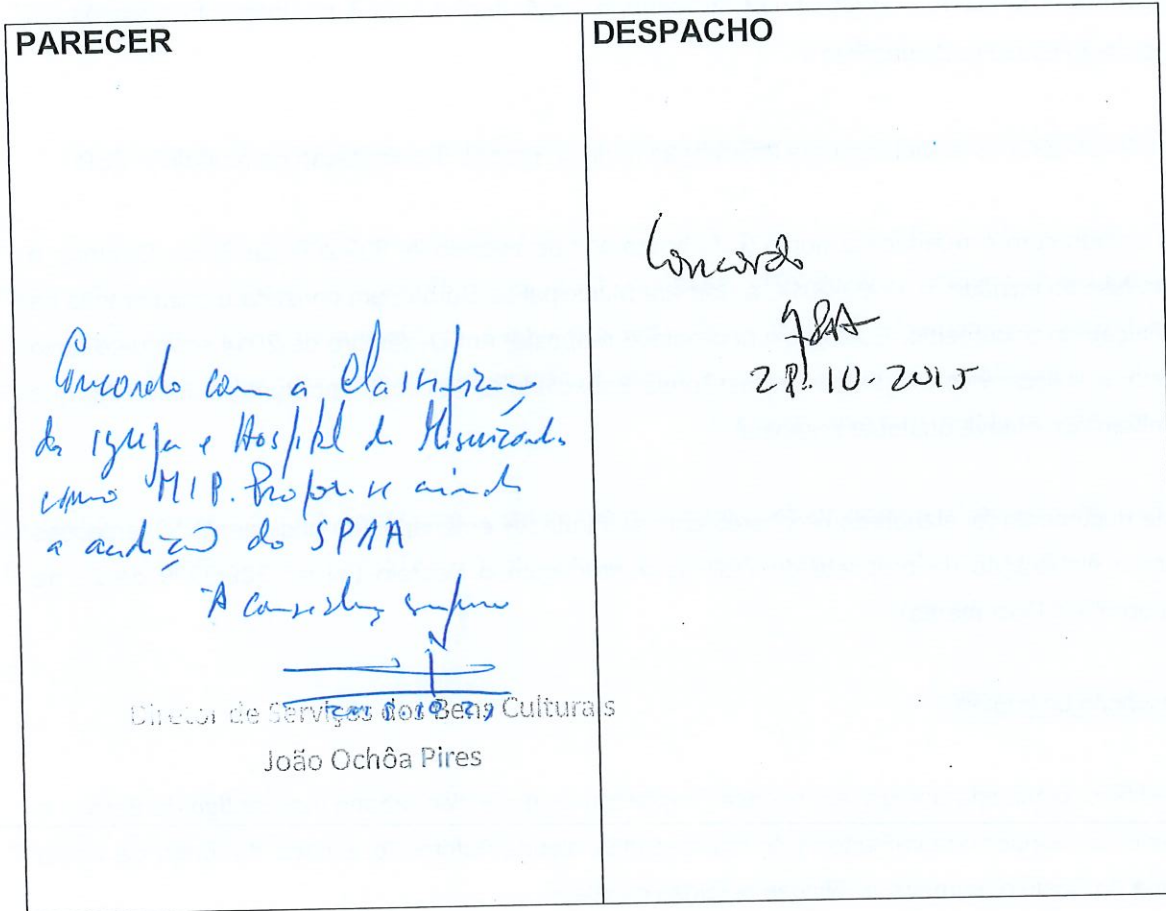 PARECER
Concordo com a Classificação
da Igreja e Hospital da Misericórdia
como MIP. Propor-se ainda
a audição do SPAA
À consideração superior
Diretor de Serviços dos Bens Culturais
João Ochôa Pires
DESPACHO
Concordo
28.10.2015